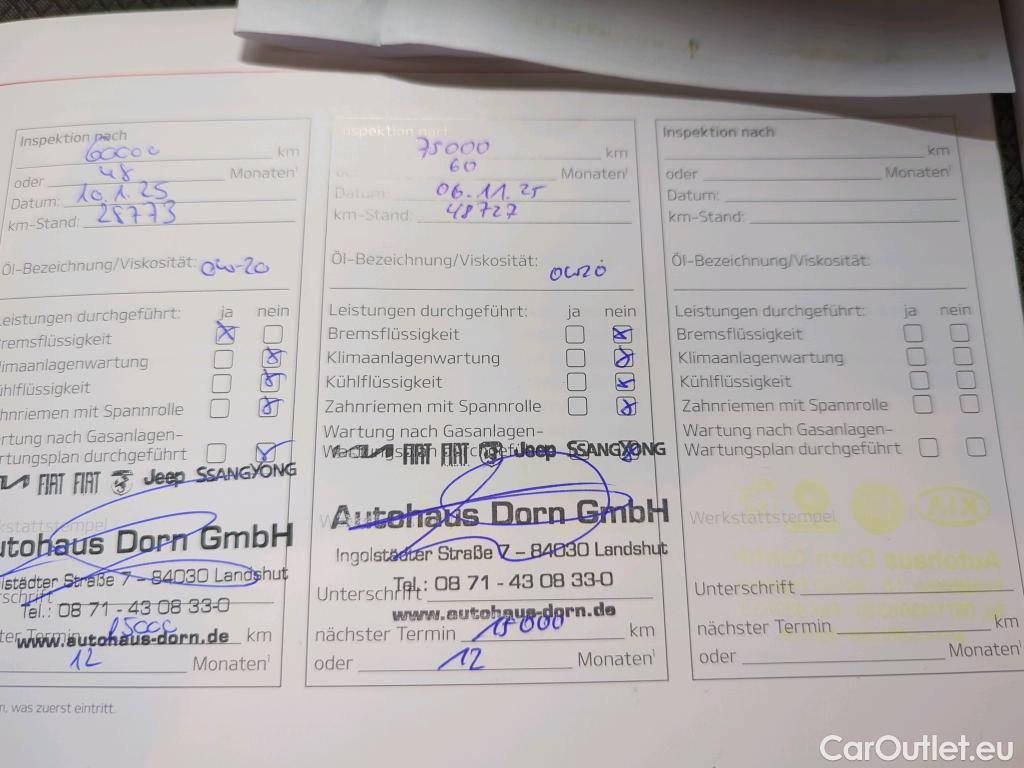 Inspektion nach
60000 km
oder 48 Monaten¹
Datum: 10.1.25
km-Stand: 28773
Öl-Bezeichnung/Viskosität: 0W-20
Leistungen durchgeführt: ja nein
Bremsflüssigkeit
Klimaanlagenwartung
Kühlflüssigkeit
Zahnriemen mit Spannrolle
Wartung nach Gasanlagen-
Wartungsplan durchgeführt
FIAT FIAT Jeep SSANGYONG
Autohaus Dorn GmbH
Ingolstädter Straße 7 – 84030 Landshut
Tel.: 08 71 - 43 08 33-0
www.autohaus-dorn.de
nächster Termin 15000 km
12 Monaten¹
n, was zuerst eintritt.
Inspektion nach
75000 km
60 Monaten¹
Datum: 06.11.25
km-Stand: 48727
Öl-Bezeichnung/Viskosität: 0W20
Leistungen durchgeführt: ja nein
Bremsflüssigkeit
Klimaanlagenwartung
Kühlflüssigkeit
Zahnriemen mit Spannrolle
Wartung nach Gasanlagen-
Wartungsplan durchgeführt
FIAT FIAT Jeep SSANGYONG
Autohaus Dorn GmbH
Ingolstädter Straße 7 – 84030 Landshut
Unterschrift
Tel.: 08 71 - 43 08 33-0
www.autohaus-dorn.de
nächster Termin 15000 km
oder 12 Monaten¹
Inspektion nach
km
oder Monaten¹
Datum:
km-Stand:
Öl-Bezeichnung/Viskosität:
Leistungen durchgeführt: ja nein
Bremsflüssigkeit
Klimaanlagenwartung
Kühlflüssigkeit
Zahnriemen mit Spannrolle
Wartung nach Gasanlagen-
Wartungsplan durchgeführt
Werkstattstempel
Unterschrift
nächster Termin km
oder Monaten¹
CarOutlet.eu